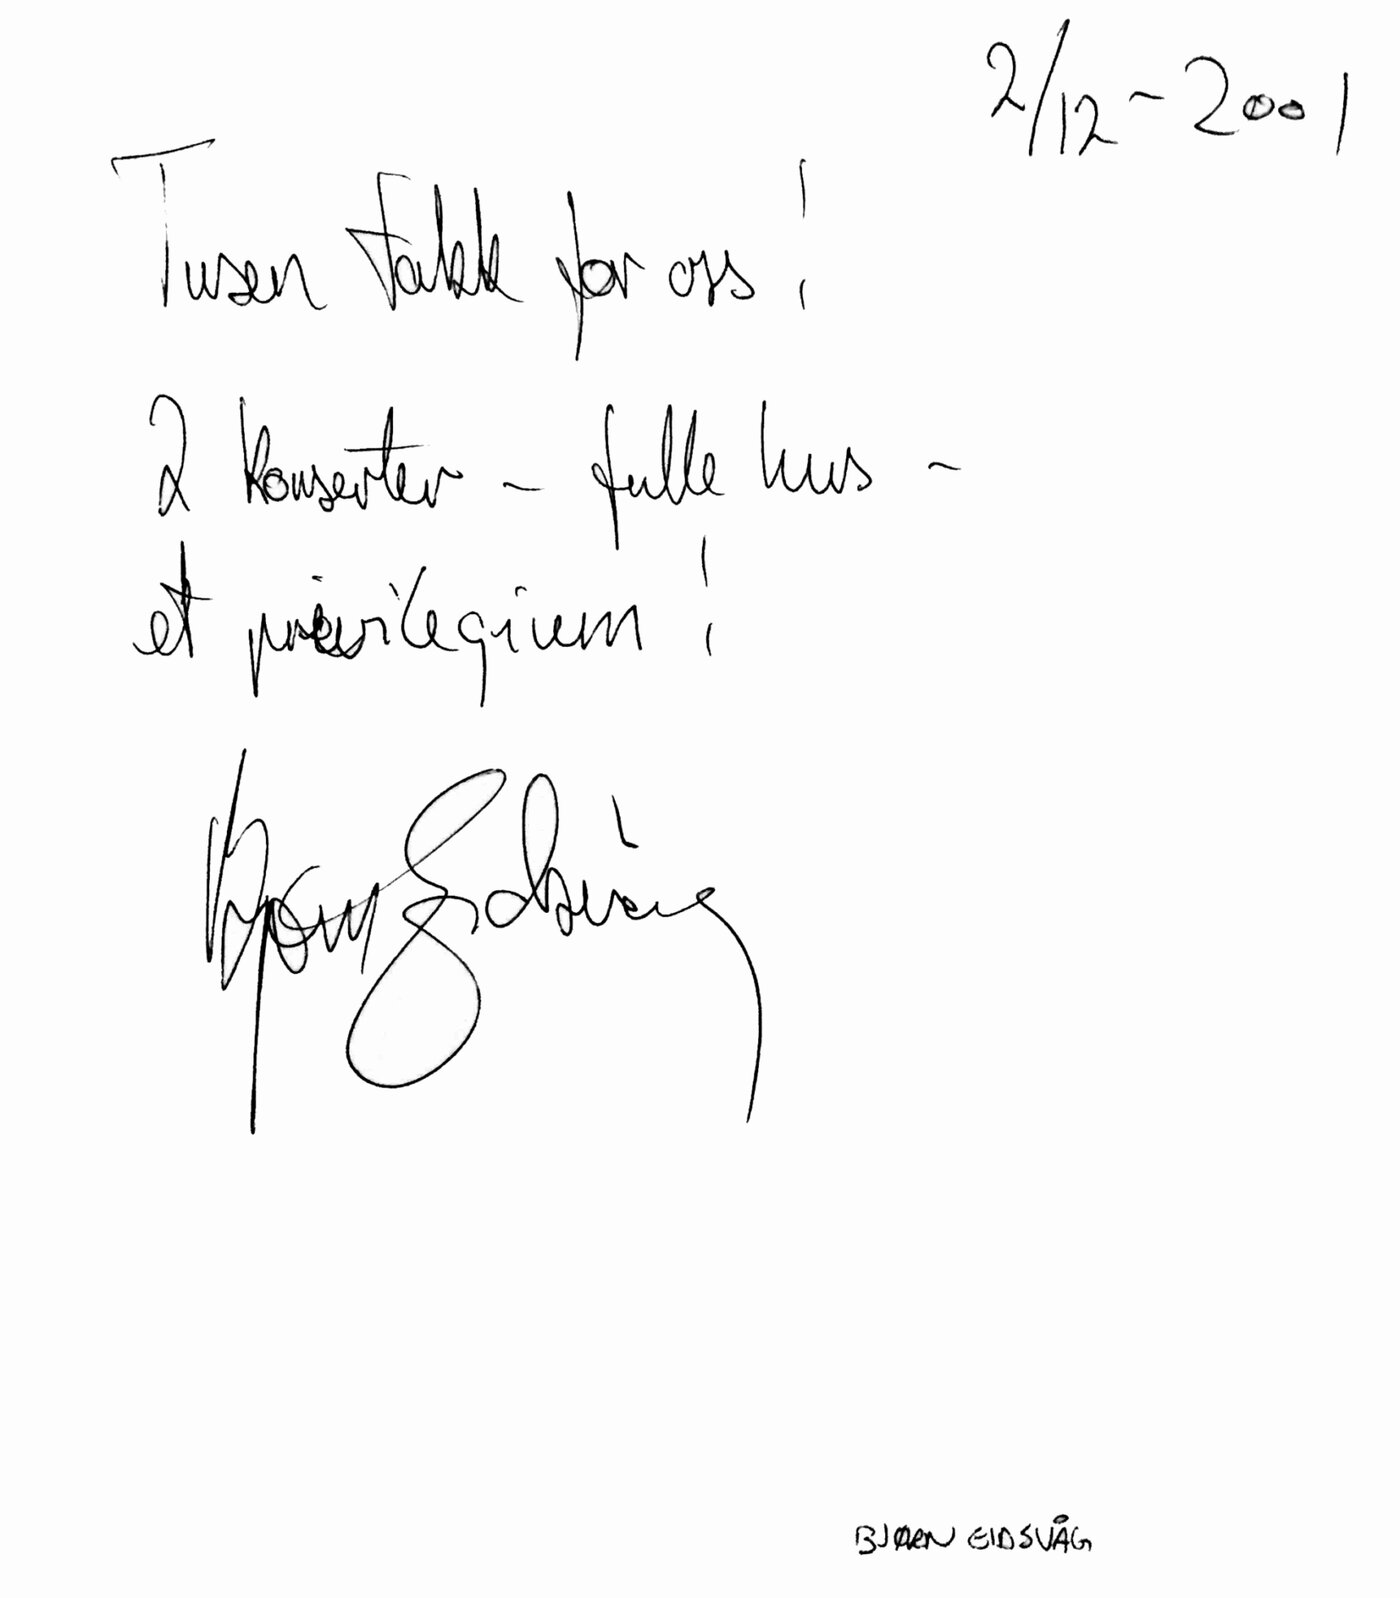 2/12 - 2001
Tusen takk for oss!
2 konserter - fulle hus -
et privilegium!
Bjørn Eidsvåg
BJØRN EIDSVÅG